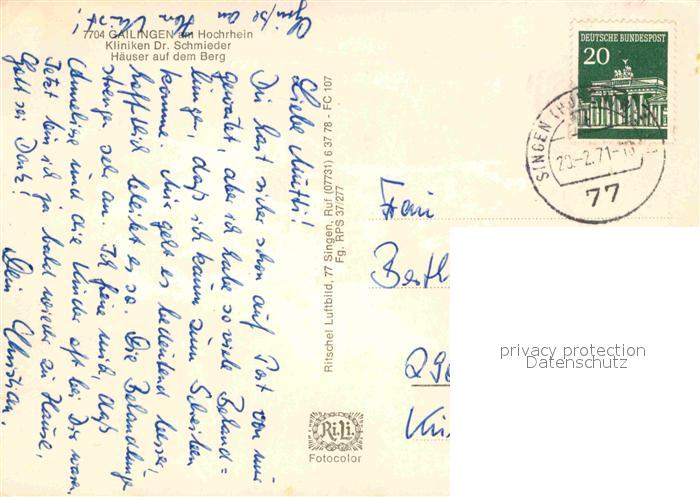 7704 GAILINGEN am Hochrhein
Kliniken Dr. Schmieder
Häuser auf dem Berg
Liebe Mutti!
Du hast sicher schon auf Post von mir
gewartet, aber ich habe so viele Behand=
lungen, daß ich kaum zum Schreiben
komme. Mir geht es bedeutend besser,
hoffentlich bleibt es so. Die Behandlung
strengt sehr an. Ich freue mich, daß
Annelise und die Kinder oft bei Dir waren.
Jetzt bin ich ja bald wieder zu Hause,
Gott sei Dank!
Dein Christian.
Grüße an
Ritschel Luftbild, 77 Singen, Ruf (07731) 6 37 78 - FC 107
Fg. RPS 37/277
DEUTSCHE BUNDESPOST
20
SINGEN
77
Frau
Berth
privacy protection
Datenschutz
Ri.Li.
Fotocolor